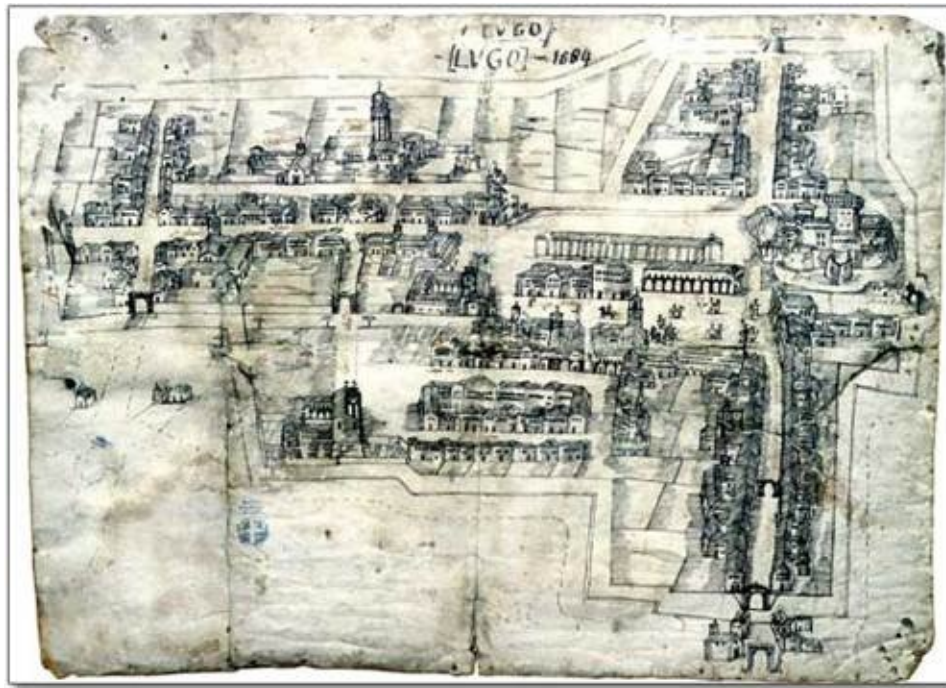 LVGO
[LVGO] - 1689